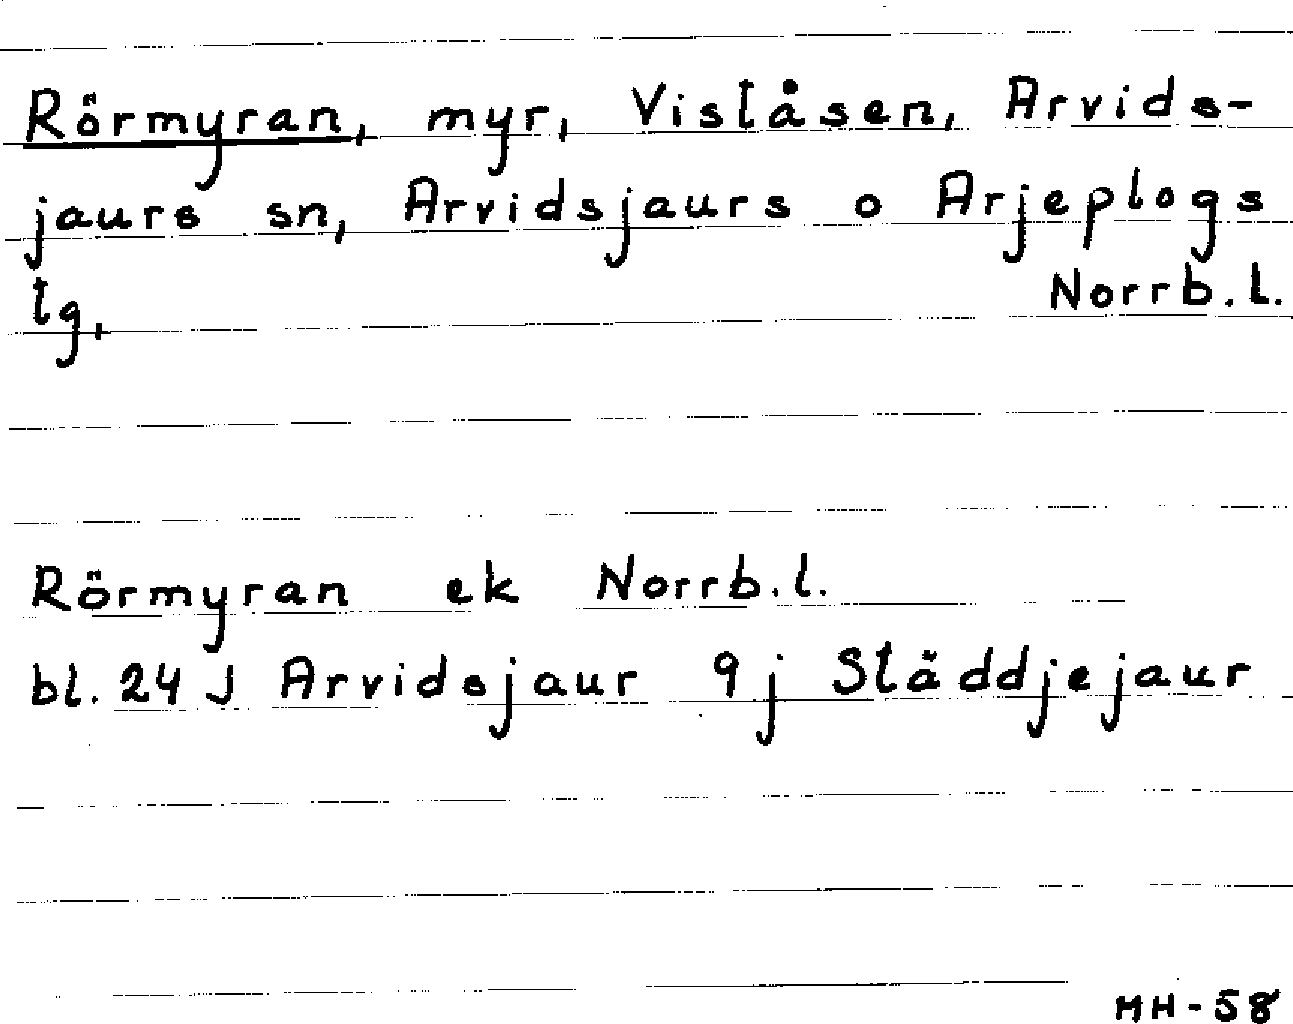 Rörmyran, myr, Viståsen, Arvids-
jaurs sn, Arvidsjaurs o Arjeplogs
tg, Norrb.l.
Rörmyran ek Norrb.l.
bl. 24 J Arvidsjaur 9 j Ståddjejaur
MH-58